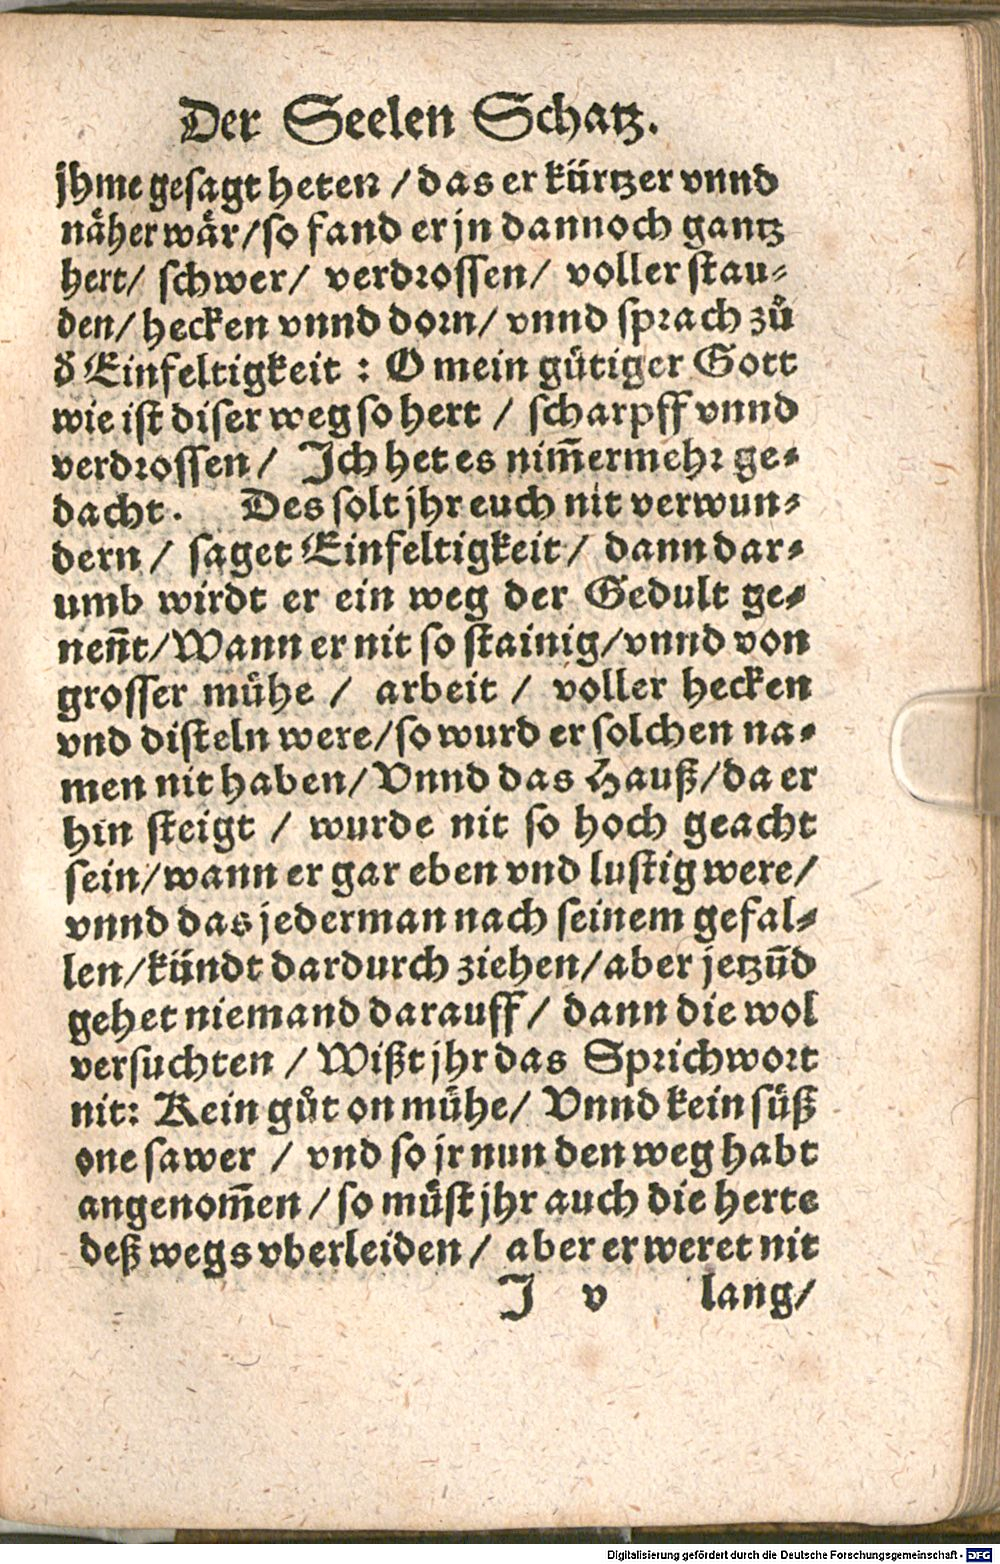 Der Seelen Schatz.
jhme gesagt heten / das er kürtzer vnnd
näher wär/so fand er jn dannoch gantz
hert/ schwer/ verdrossen/ voller stau-
den/ hecken vnnd dorn/ vnnd sprach zů
d̕ Einfeltigkeit : O mein gütiger Gott
wie ist diser weg so hert / scharpff vnnd
verdrossen/ Ich het es nim̃ermehr ge-
dacht. Des solt jhr euch nit verwun-
dern / saget Einfeltigkeit/ dann dar-
umb wirdt er ein weg der Gedult ge-
neñt/Wann er nit so stainig/vnnd von
grosser mühe / arbeit / voller hecken
vnd disteln were/so wurd er solchen na-
men nit haben/ Vnnd das Hauß/da er
hin steigt / wurde nit so hoch geacht
sein/wann er gar eben vnd lustig were/
vnnd das jederman nach seinem gefal-
len/kündt dardurch ziehen/aber jetzũd
gehet niemand darauff/ dann die wol
versuchten / Wißt jhr das Sprichwort
nit: Kein gůt on mühe/ Vnnd kein süß
one sawer / vnd so jr nun den weg habt
angenom̃en / so müst jhr auch die herte
deß wegs vberleiden/ aber er weret nit
J v lang/
Digitalisierung gefördert durch die Deutsche Forschungsgemeinschaft - DFG